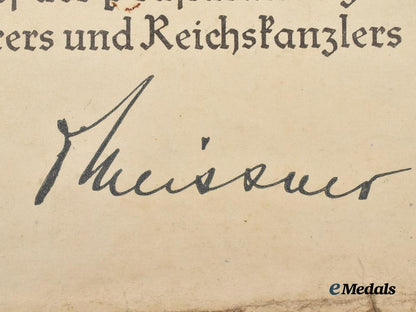 rers und Reichskanzlers
Meissner
eMedals